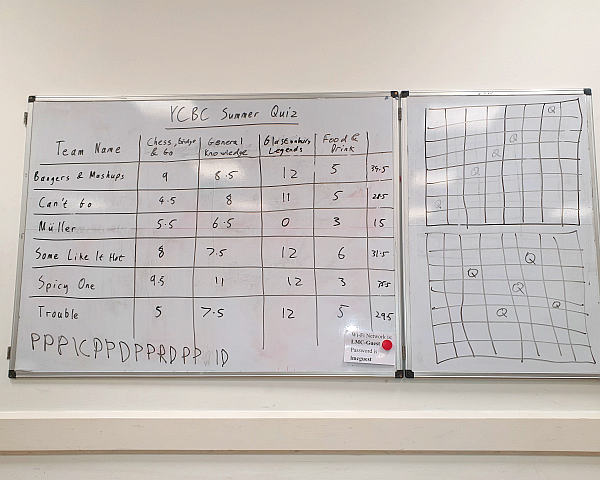 YCBC Summer Quiz
Team Name Chess, Bridge & Go General Knowledge Glastonbury Legends Food & Drink
Bangers & Mashups 9 8.5 12 5 34.5
Can't Go 4.5 8 11 5 28.5
Müller 5.5 6.5 0 3 15
Some Like It Hot 8 7.5 12 6
Spicy One 9.5 11 12 3
Trouble 5 7.5 12 5 29.5
Wi-Fi Network is:
LMC-Guest
Password is:
lmcguest
Q
Q
Q
Q
Q
Q
Q
Q
Q
Q